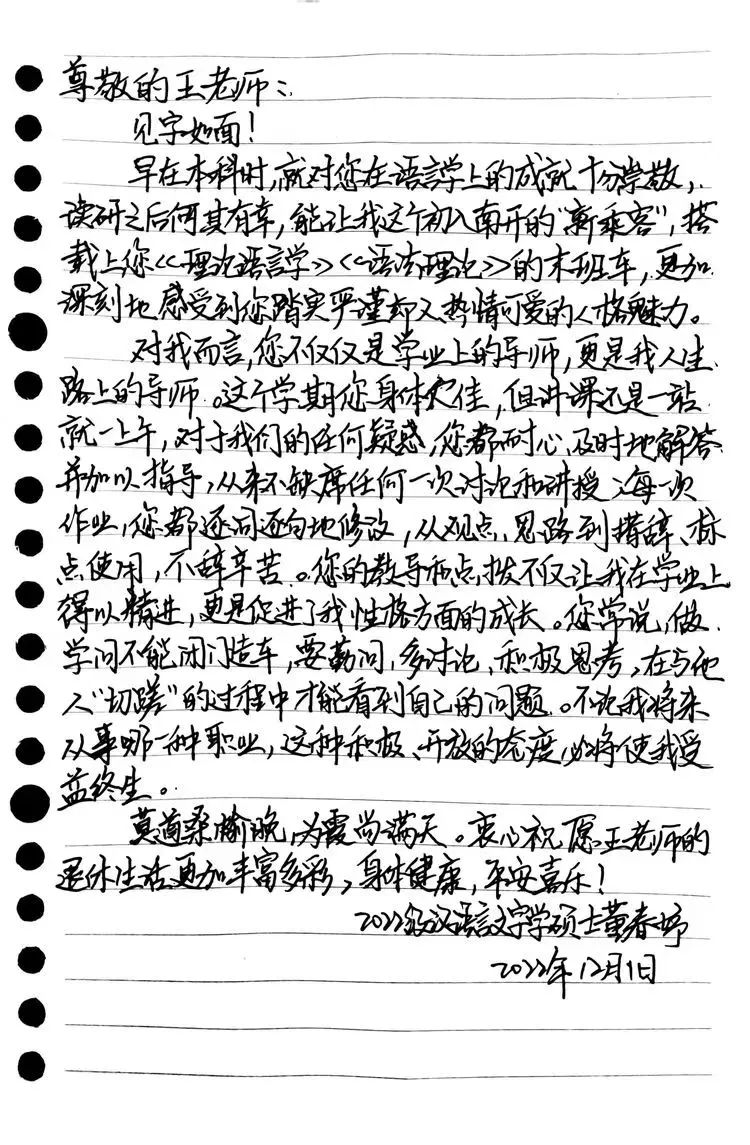 尊敬的王老师：
见字如面！
早在本科时，就对您在语言学上的成就十分崇敬，
读研之后何其有幸，能让我这个初入南开的“新乘客”，搭
载上您《理论语言学》《语法理论》的末班车，更加
深刻地感受到您踏实严谨却又热情可爱的人格魅力。
对我而言，您不仅仅是学业上的导师，更是我人生
路上的导师。这个学期您身体欠佳，但讲课还是一站
就一上午，对于我们的任何疑惑，您都耐心、及时地解答
并加以指导，从来不缺席任何一次讨论和讲授；每一次
作业，您都逐词逐句地修改，从观点、思路到措辞、标
点使用，不辞辛苦。您的教导和点拨不仅让我在学业上
得以精进，更是促进了我性格方面的成长。您常说，做
学问不能闭门造车，要勤问，多讨论、积极思考，在与他
人“切蹉”的过程中才能看到自己的问题。不论我将来
从事哪一种职业，这种积极、开放的态度，必将使我受
益终生。
莫道桑榆晚，为霞尚满天。衷心祝愿王老师的
退休生活更加丰富多彩，身体健康，平安喜乐！
2022级汉语言文字学硕士董春
2022年12月1日